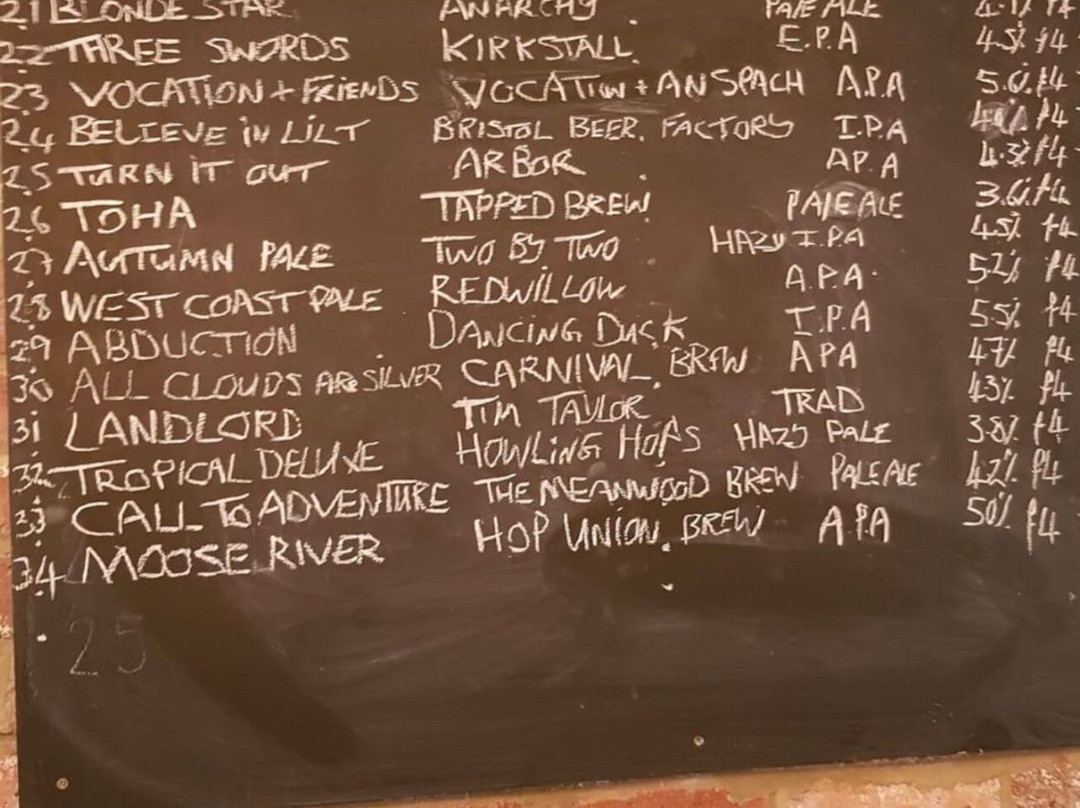 21 BLONDE STAR ANARCHY PALE ALE 4.1% £4
22 THREE SWORDS KIRKSTALL. E.P.A 4.5% £4
23 VOCATION + FRIENDS VOCATION + ANSPACH A.P.A £4
24 BELIEVE IN LILT BRISTOL BEER. FACTORY I.P.A £4
25 TURN IT OUT ARBOR AP.A 4.3% £4
26 TOHA TAPPED BREW. PALE ALE £4
27 AUTUMN PALE TWO BY TWO HAZY I.P.A 45% £4
28 WEST COAST PALE REDWILLOW A.P.A. 52% £4
29 ABDUCTION DANCING DUCK I.P.A 55% £4
30 ALL CLOUDS ARE SILVER CARNIVAL. BREW APA 47% £4
31 LANDLORD TIM TAYLOR TRAD 43% £4
32 TROPICAL DELUXE HOWLING HOPS HAZY PALE 38% £4
33 CALL TO ADVENTURE THE MEANWOOD BREW PALE ALE 42% £4
34 MOOSE RIVER HOP UNION. BREW A.P.A 50% £4
25